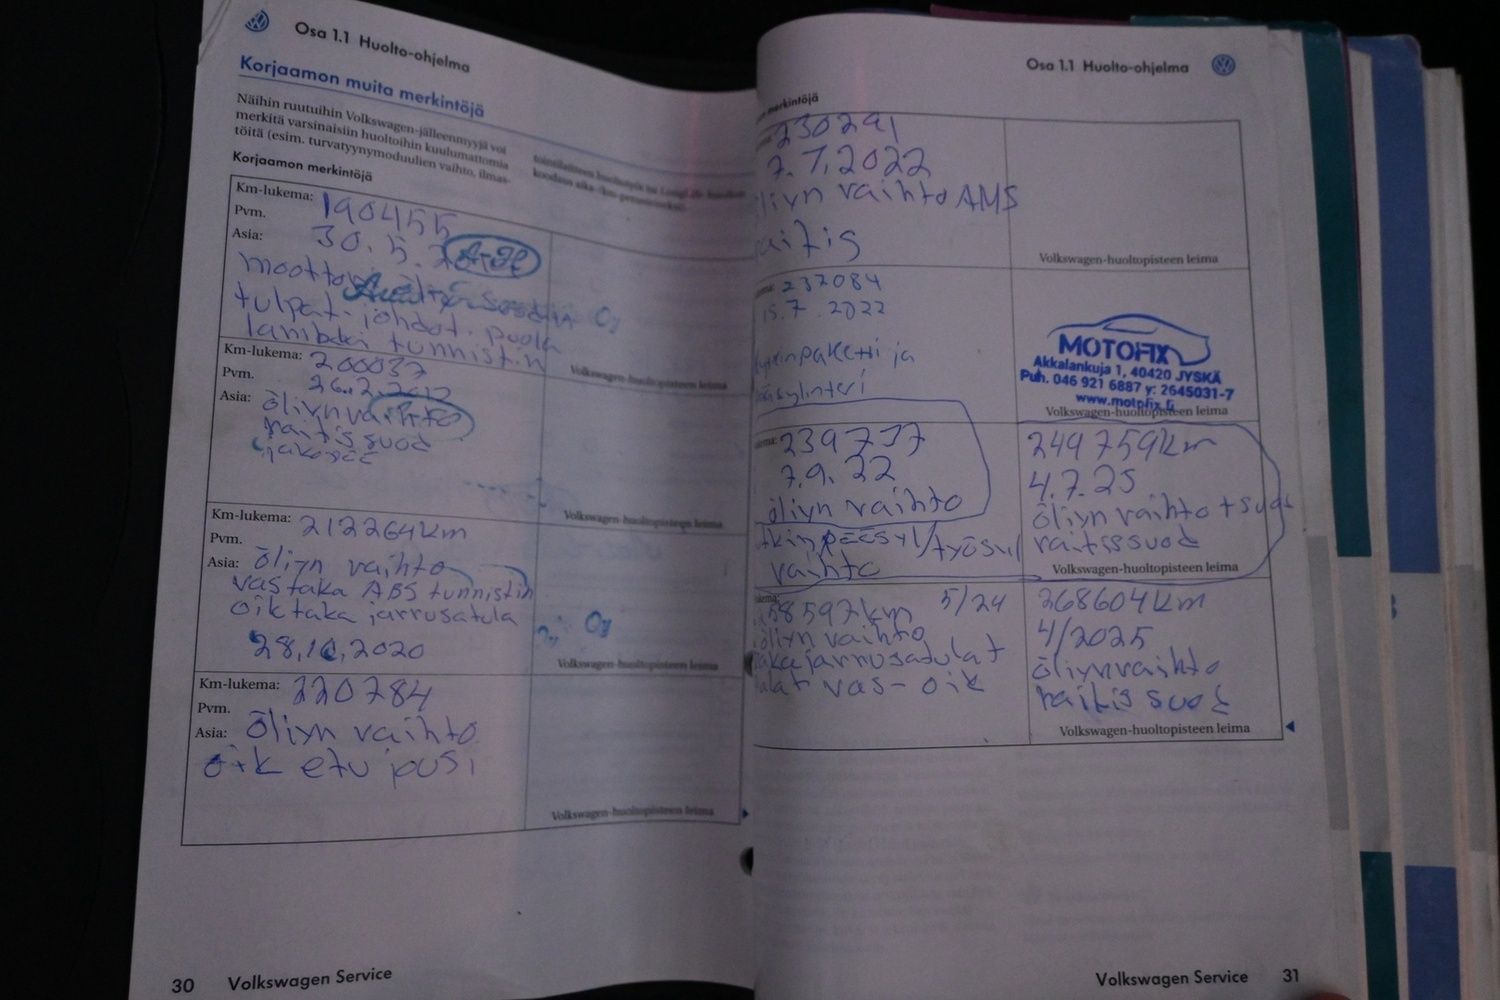 Osa 1.1 Huolto-ohjelma
Korjaamon muita merkintöjä
Näihin ruutuihin Volkswagen-jälleenmyyjä voi
merkitä varsinaisiin huoltoihin kuulumattomia
töitä (esim. turvatyynymoduulien vaihto, ilmas-
Korjaamon merkintöjä
Km-lukema: 190455
Pvm. 30.5.
Asia:
A-H
tulpat johdot puola
lambda tunnistin
Oy
Volkswagen-huoltopisteen leima
Km-lukema: 200037
Pvm. 26.2.
Asia: öliyn vaihto
raitis suod
jakopää
Volkswagen-huoltopisteen leima
Km-lukema: 212264km
Pvm.
Asia: öliyn vaihto
vas taka ABS tunnistin
oik taka jarrusatula
28.10.2020
Oy
Volkswagen-huoltopisteen leima
Km-lukema: 220784
Pvm.
Asia: öliyn vaihto
oik etu pusi
Volkswagen-huoltopisteen leima
30 Volkswagen Service
Osa 1.1 Huolto-ohjelma
merkintöjä
230291
7.1.2022
liyn vaihto AMS
aitis
Volkswagen-huoltopisteen leima
237084
15.7.2022
ytkinpaketti ja
sylinteri
MOTOFIX
Akkalankuja 1, 40420 JYSKÄ
Puh. 046 921 6887 y: 2645031-7
www.motofix.fi
Volkswagen-huoltopisteen leima
239737
7.9.22
öliyn vaihto
tkin pääsyl/työsyl
vaihto
249759km
4.7.23
öliyn vaihto + suod
raitissuod
Volkswagen-huoltopisteen leima
58597km 5/24
öliyn vaihto
aka jarrusatulat
alat vas-oik
268604km
4/2025
öliynvaihto
raitis suod
Volkswagen-huoltopisteen leima
Volkswagen Service 31